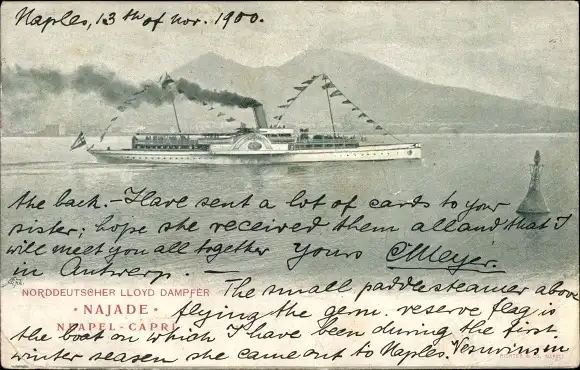 Naples, 13th of nov. 1900.
the back. - Have sent a lot of cards to your
sister; hope she received them all and that I
will meet you all together yours CMeyer.
in Antwerp. -
NORDDEUTSCHER LLOYD DAMPFER
· NAJADE ·
NEAPEL - CAPRI
The small paddlesteamer above
flying the gem. reserve flag is
the boat on which I have been during the first
winter season she came out to Naples. Vesuvius in